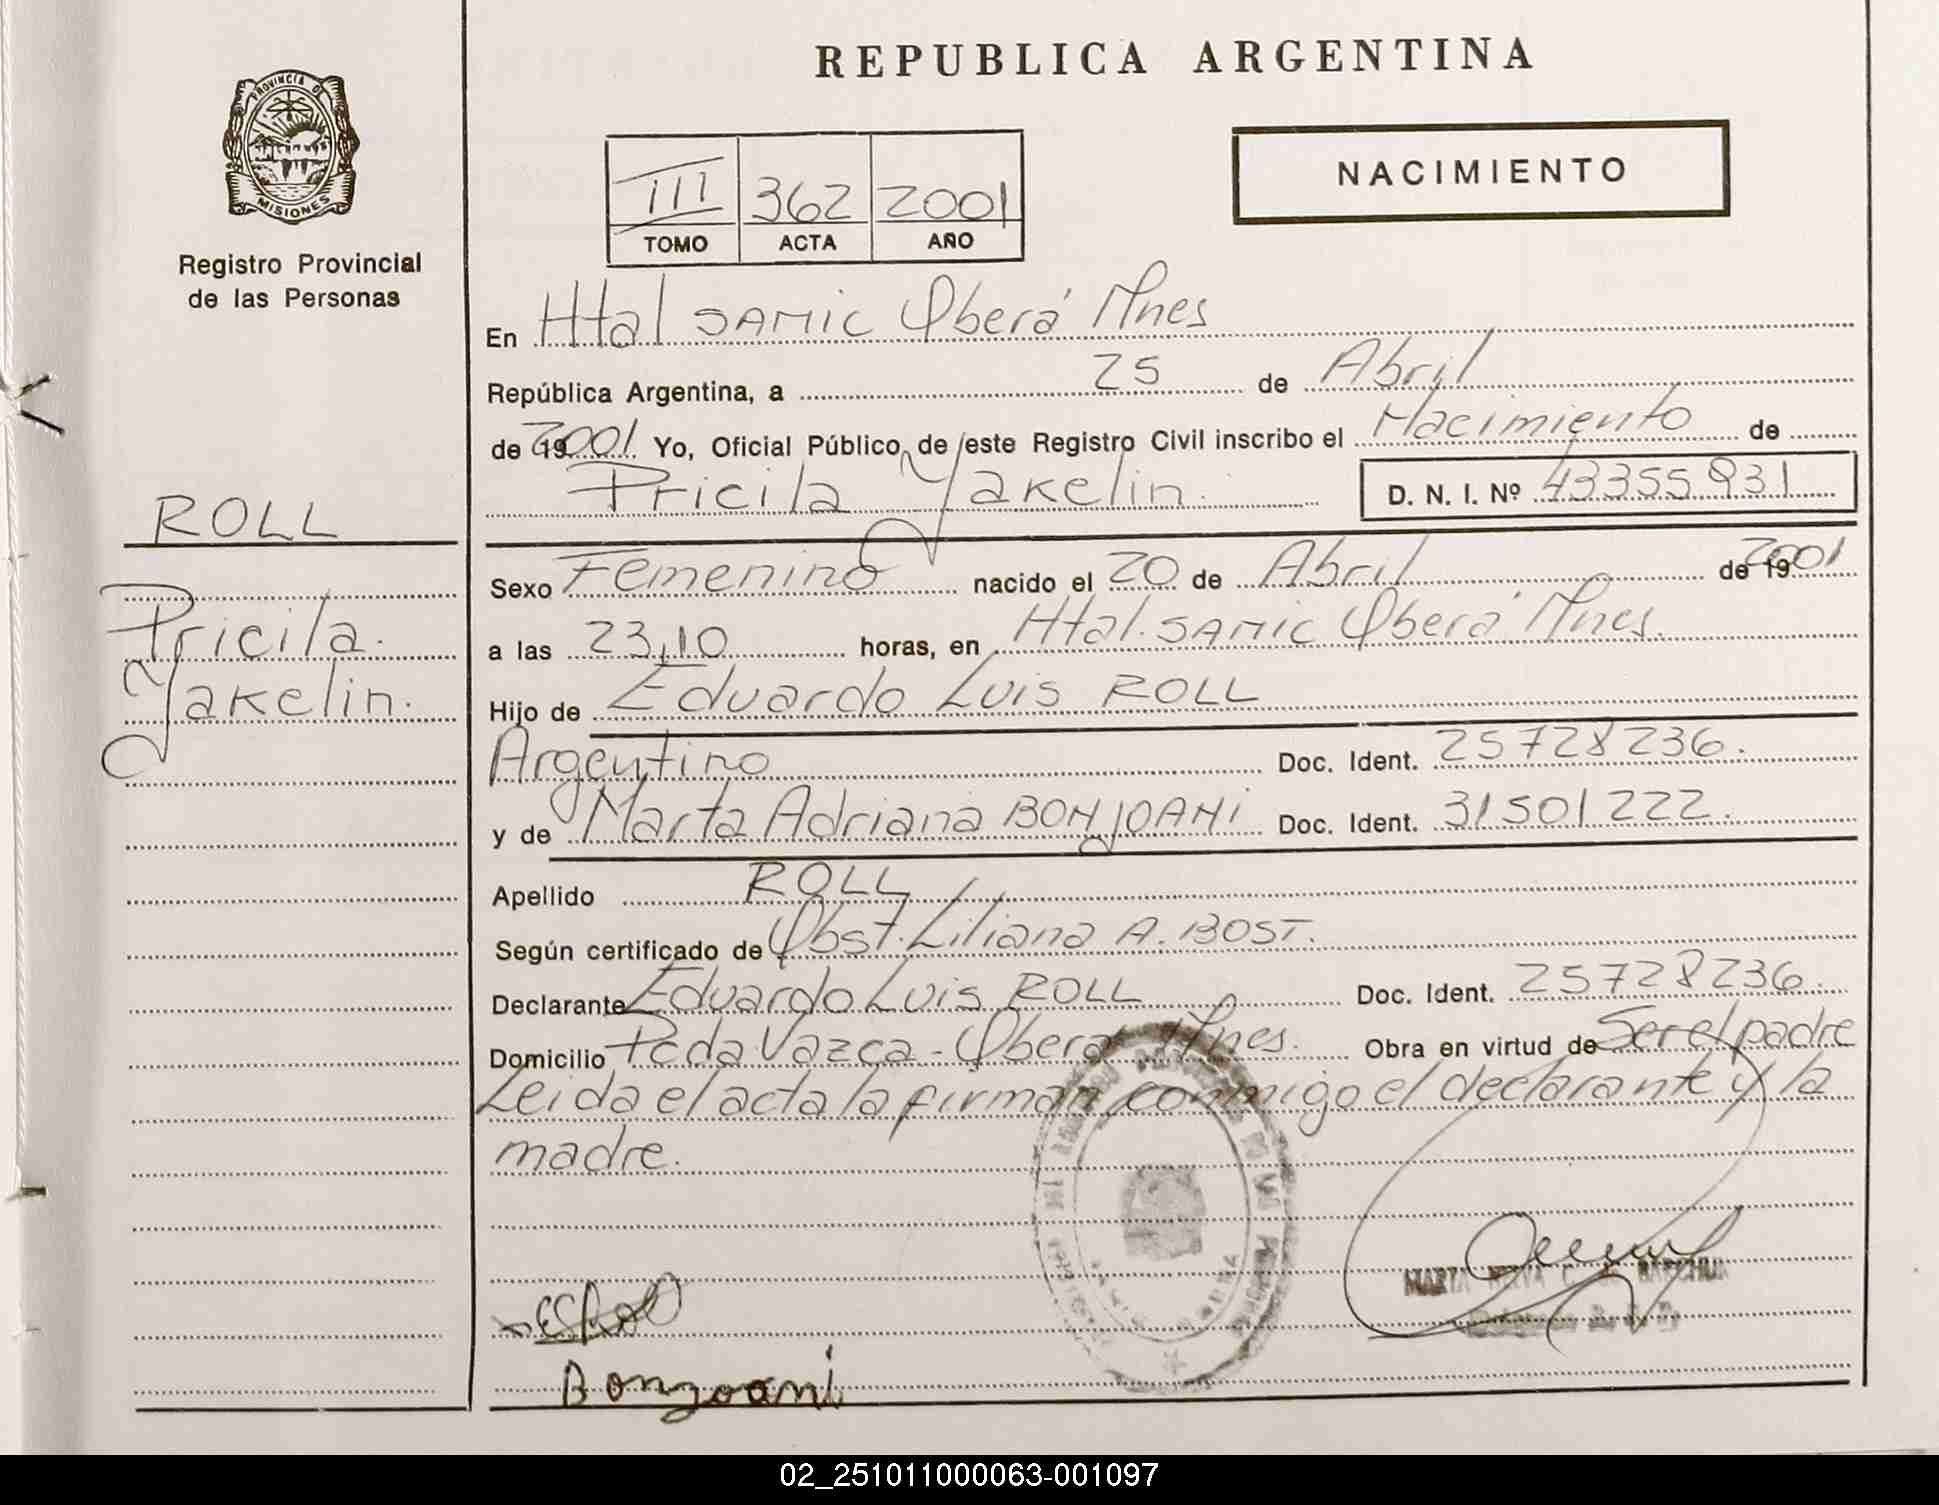 PROVINCIA DE
MISIONES
Registro Provincial
de las Personas
REPUBLICA ARGENTINA
NACIMIENTO
III 362 2001
TOMO ACTA AÑO
En Htal SAMIC Oberá Mnes
República Argentina, a 25 de Abril
de 19 2001 Yo, Oficial Público de este Registro Civil inscribo el Nacimiento de
Pricila Yakelin. D. N. I. Nº 43355931
ROLL
Pricila.
Yakelin.
Sexo Femenino nacido el 20 de Abril de 19 2001
a las 23,10 horas, en Htal. SAMIC Oberá Mnes.
Hijo de Eduardo Luis ROLL
Argentino Doc. Ident. 25728236.
y de Marta Adriana BONJOANI Doc. Ident. 31501222.
Apellido ROLL
Según certificado de Obst. Liliana A. BOST.
Declarante Eduardo Luis ROLL Doc. Ident. 25728236.
Domicilio Pcda Vazca - Oberá Mnes. Obra en virtud de Ser el padre
Leida el acta la firman conmigo el declarante y la
madre.
MARTA
Bonzoani
02_251011000063-001097